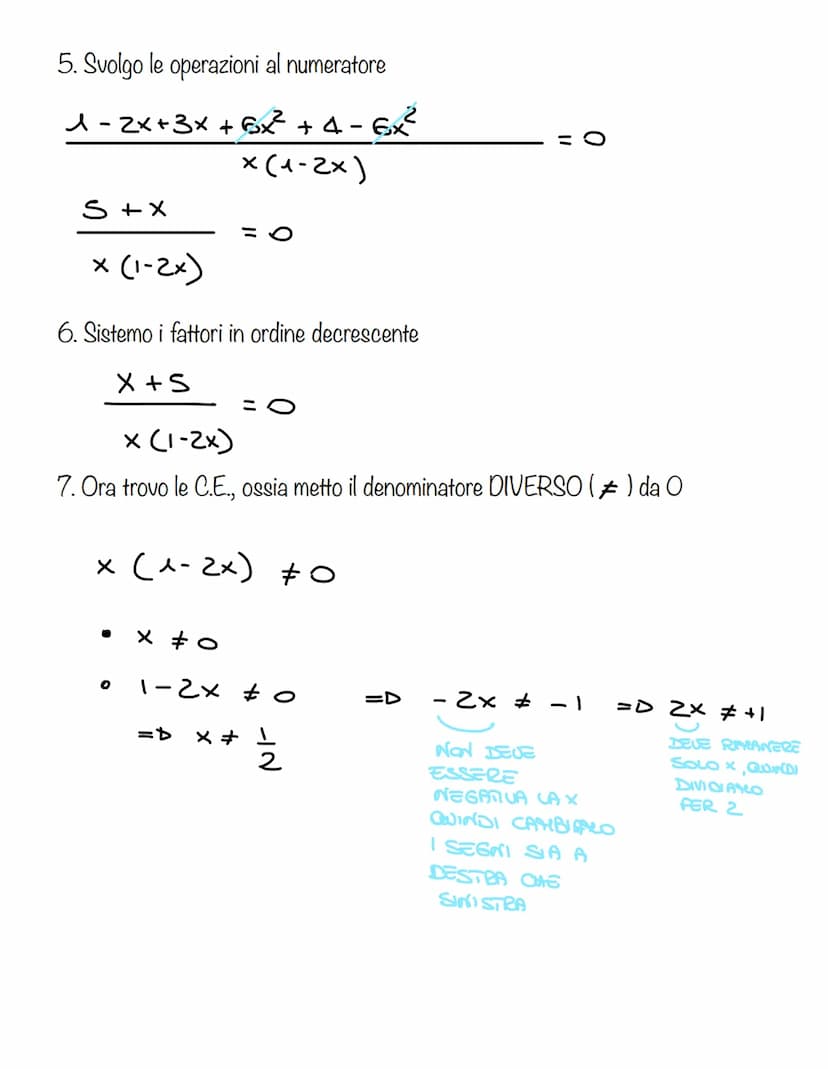 5. Svolgo le operazioni al numeratore
1 - 2x + 3x + 6x² + 4 - 6x²
= 0
x (1 - 2x)
5 + x
= 0
x (1 - 2x)
6. Sistemo i fattori in ordine decrescente
x + 5
= 0
x (1 - 2x)
7. Ora trovo le C.E., ossia metto il denominatore DIVERSO ( ≠ ) da 0
x (1 - 2x) ≠ 0
• x ≠ 0
• 1 - 2x ≠ 0 => - 2x ≠ - 1 => 2x ≠ +1
=> x ≠ 1/2
NON DEVE
ESSERE
NEGATIVA LA X
QUINDI CAMBIAMO
I SEGNI SIA A
DESTRA CHE
SINISTRA
DEVE RIMANERE
SOLO X, QUINDI
DIVIDIAMO
PER 2